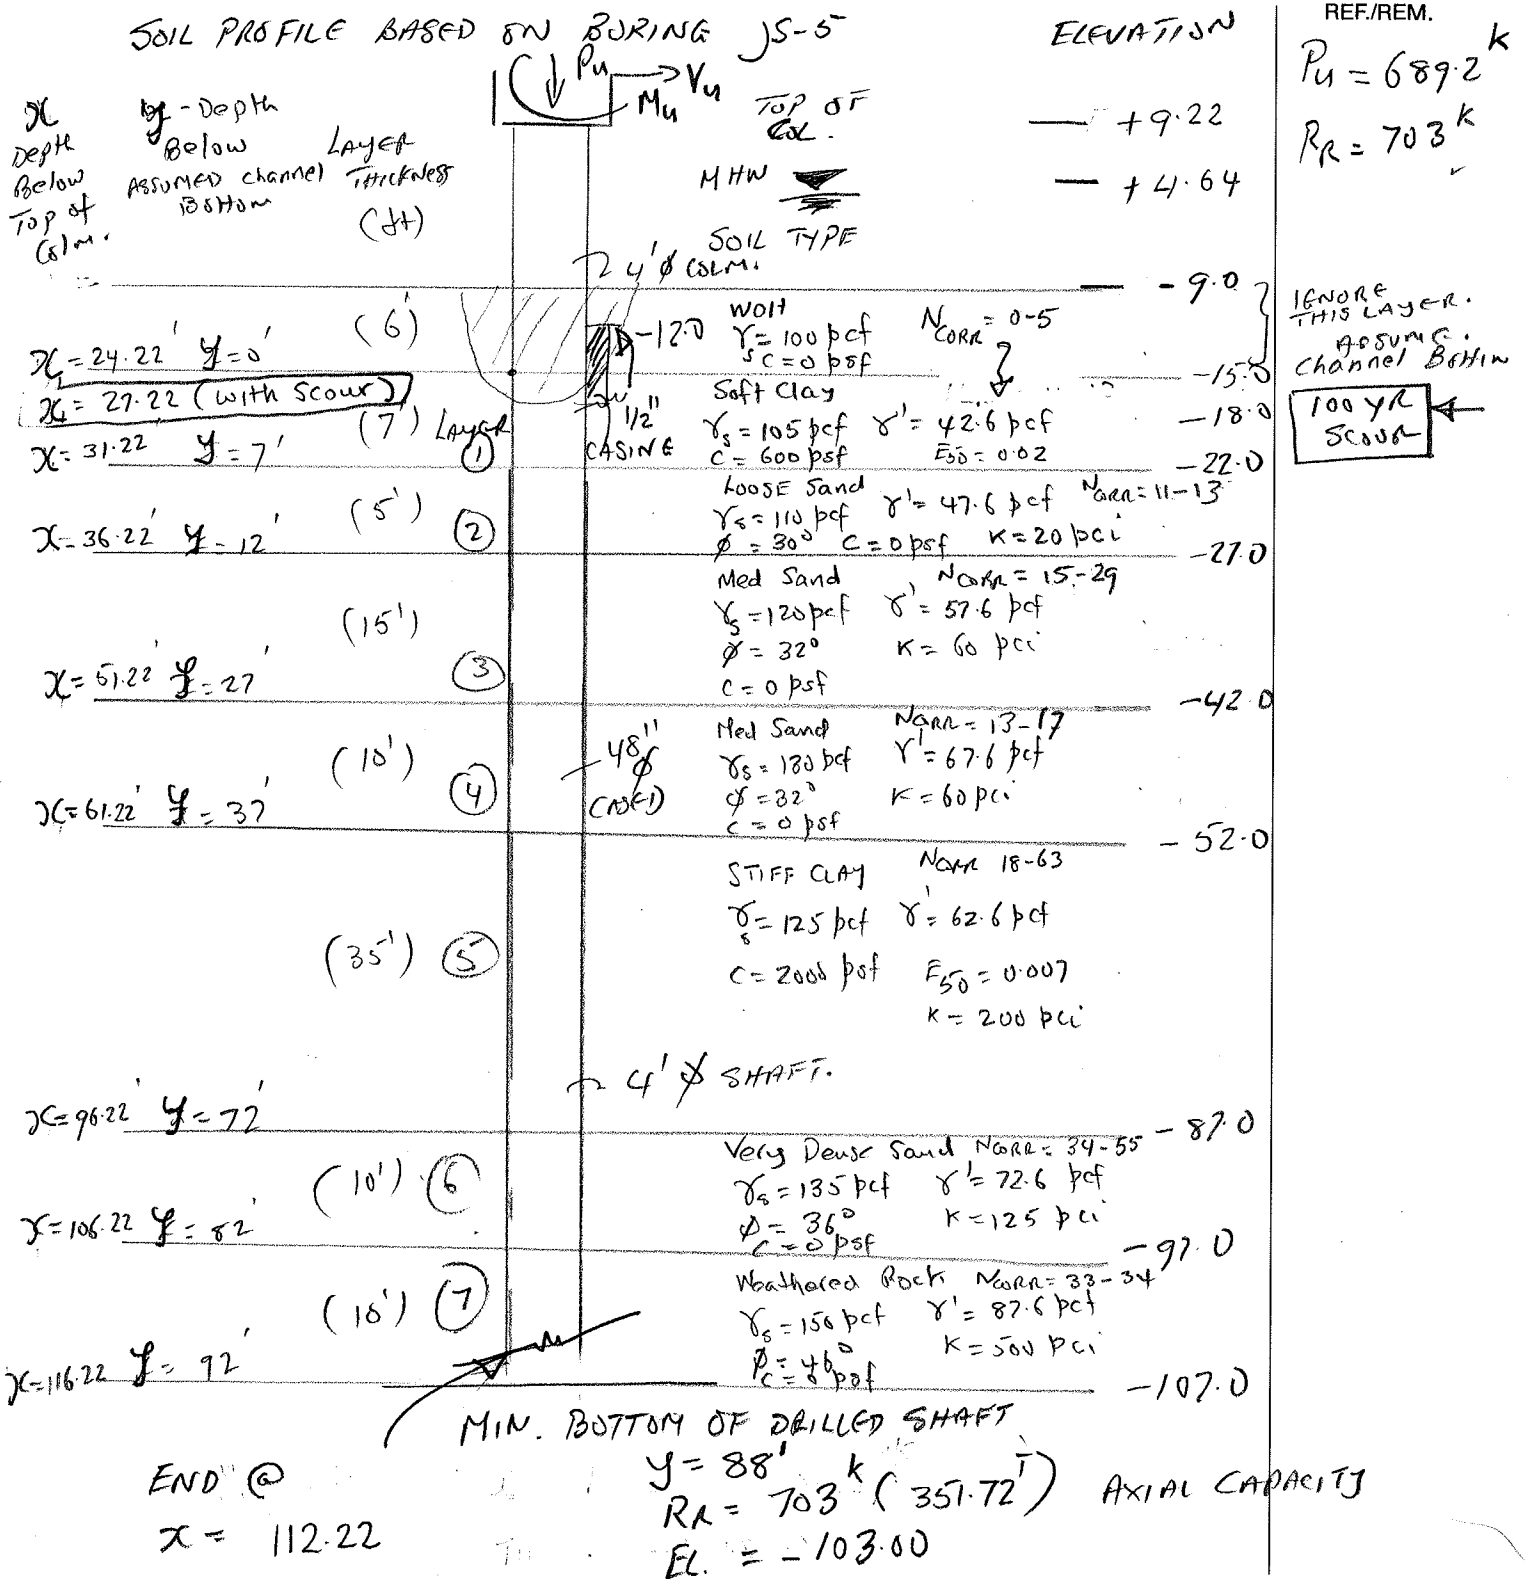 SOIL PROFILE BASED ON BORING JS-5
ELEVATION
REF./REM.
Pu = 689.2 k
RR = 703 k
Pu
Vu
Mu
x
Depth
Below
Top of
Colm.
y - Depth
Below
ASSUMED channel
Bottom
LAYER
THICKNESS
(ft)
TOP OF
COL.
+9.22
MHW
+4.64
SOIL TYPE
4'ϕ COLM.
-9.0
IGNORE
THIS LAYER.
ASSUME.
Channel Bottom
(6')
WOH
γs = 100 pcf
c = 0 psf
NCORR = 0-5
-12.0
x = 24.22' y = 0'
-15.0
x = 27.22 (with Scour)
Soft Clay
γs = 105 pcf γ' = 42.6 pcf
c = 600 psf E50 = 0.02
-18.0
100 YR
SCOUR
1/2"
CASING
(7') LAYER
①
x = 31.22' y = 7'
-22.0
LOOSE Sand
NCORR = 11-13
γs = 110 pcf γ' = 47.6 pcf
ϕ = 30° c = 0 psf K = 20 pci
(5') ②
x = 36.22' y = 12'
-27.0
Med Sand NCORR = 15-29
γs = 120 pcf γ' = 57.6 pcf
ϕ = 32° K = 60 pci
c = 0 psf
(15')
③
x = 51.22' y = 27'
-42.0
Med Sand NCORR = 13-17
γs = 130 pcf γ' = 67.6 pcf
ϕ = 32° K = 60 pci
c = 0 psf
(10') ④
48"ϕ
CASED
x = 61.22' y = 37'
-52.0
STIFF CLAY NCORR 18-63
γs = 125 pcf γ' = 62.6 pcf
c = 2000 psf E50 = 0.007
K = 200 pci
(35') ⑤
4'ϕ SHAFT.
x = 96.22' y = 72'
-87.0
Very Dense Sand NCORR = 34-55
γs = 135 pcf γ' = 72.6 pcf
ϕ = 36° K = 125 pci
c = 0 psf
(10') ⑥
x = 106.22 y = 82'
-97.0
Weathered Rock NCORR = 33-34
γs = 150 pcf γ' = 87.6 pcf
K = 500 pci
ϕ = 46°
c = 0 psf
(10') ⑦
x = 116.22 y = 92'
-107.0
MIN. BOTTOM OF DRILLED SHAFT
END @
x = 112.22
y = 88'
RR = 703 k (351.72 T) AXIAL CAPACITY
EL. = -103.00